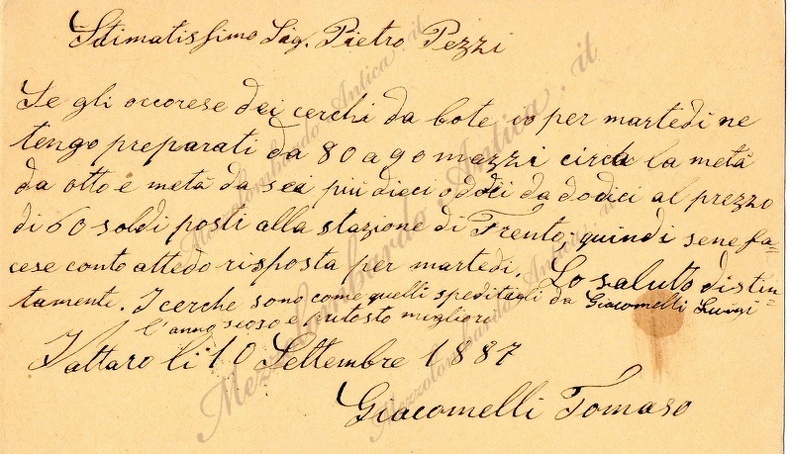 Stimatissimo Sig. Pietro Pezzi
Se gli occorese dei cerchi da bote io per martedi ne
tengo preparati da 80 a 90 mazzi circa la metà
da otto e metà da sei più dieci o dodici da dodici al prezzo
di 60 soldi posti alla stazione di Trento. quindi se ne fa=
cese conto attedo risposta per martedi, Lo saluto distin=
tamente. I cerche sono come quelli speditagli da Giacomelli Luigi
l'anno scorso e piutosto migliore
Vattaro li 10 Settembre 1887
Giacomelli Tomaso
Mezzolombardo Antica . it
Mezzolombardo Antica . it
Mezzolombardo Antica . it